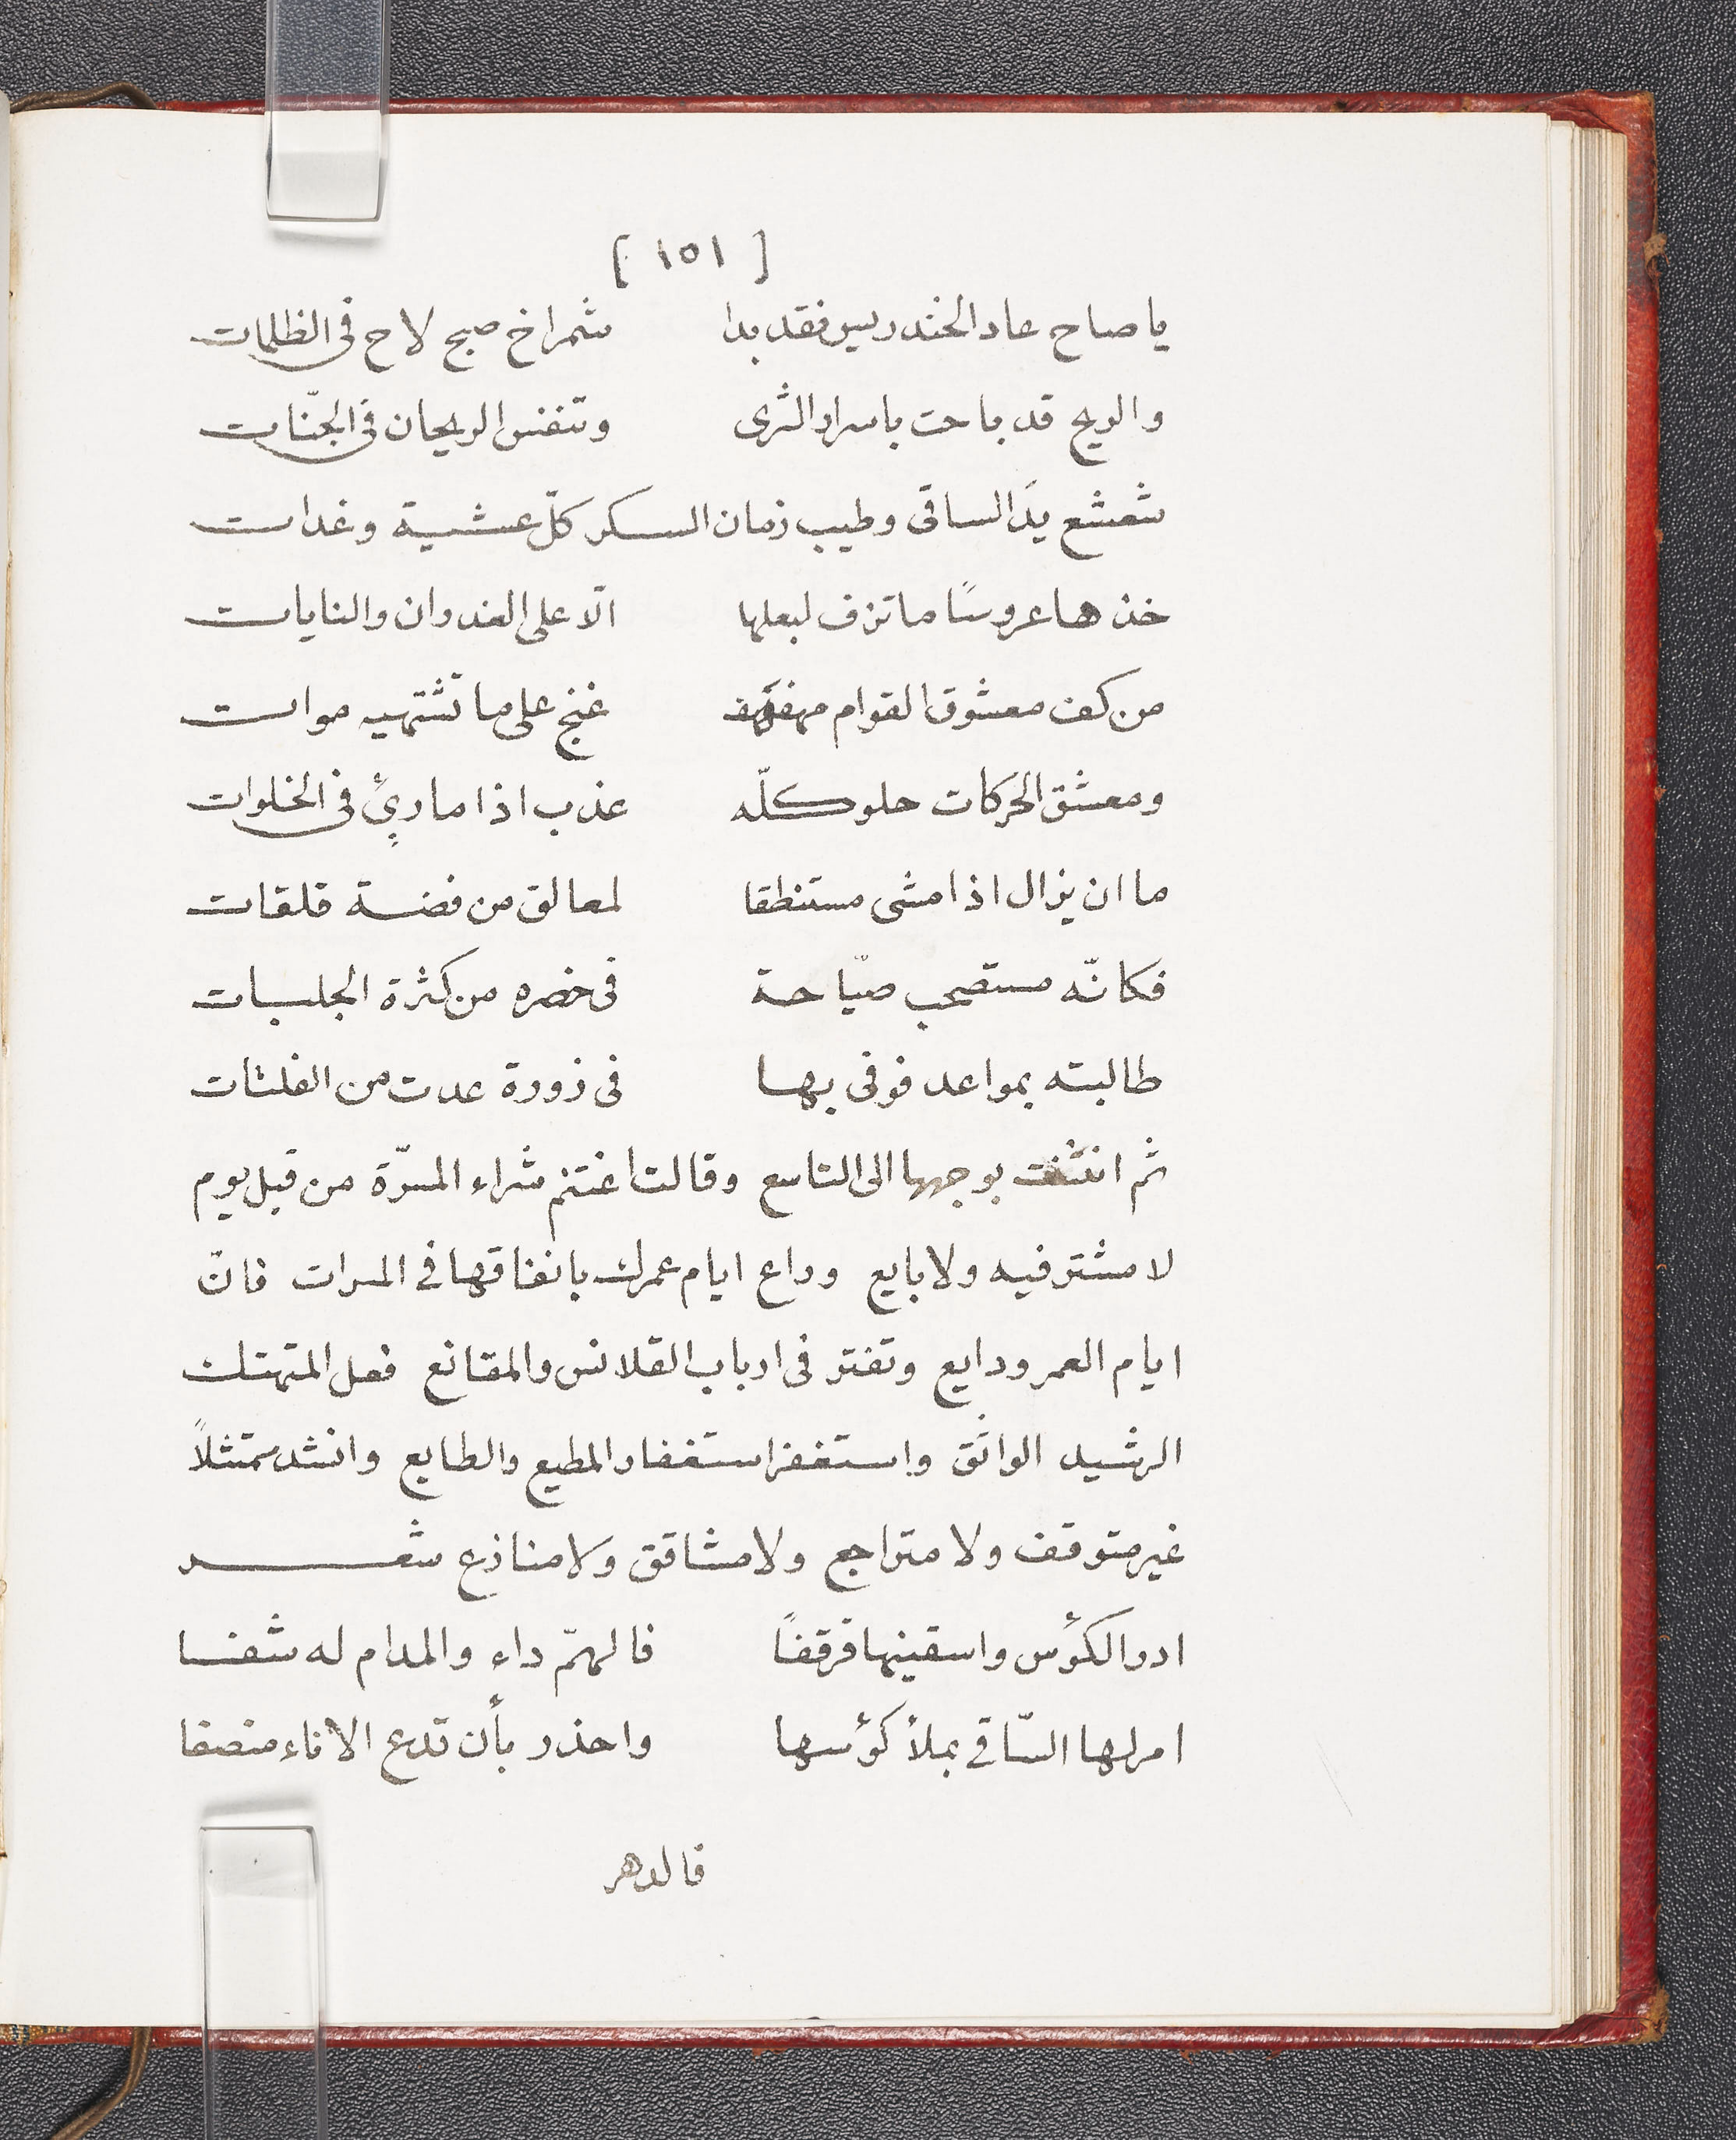 [ ١٥١ ]
يا صاح عاد الخندريس فقد بدا شمراخ صبح لاح فى الظلمات
والريح قد باحت باسرار الثرى وتنفس الريحان فى الجنّات
شعشع يدَ الساقى وطيب زمان السكر كلّ عشية وغدات
خذ ها عروسًا ما تزف لبعلها الّا على العندوان والنايات
من كف معشوق القوام مهفهف غنج على ما تشتهيه موات
ومعشق الحركات حلو كلّه عذب اذا ما ريئ فى الخلوات
ما ان يزال اذا مشى مستنطقا لمعالق من فضة قلقات
فكانّه مستصحب صيّاحة فى خصره من كثرة الجلبات
طالبته بمواعد فوفى بها فى زورة عدت من الفلتات
ثم انثنت بوجهها الى التاسع وقالت اغتنم شراء المسرّة من قبل يوم
لا مشتر فيه ولا بايع وداع ايام عمرك بانفاقها فى المسرات فانّ
ايام العمر ودايع وتفتر فى ارباب القلانس والمقانع فعل المتهتك
الرشيد الواثق واستغفر استغفار المطيع والطايع وانشد متمثلاً
غير متوقف ولا متراجع ولا مشاقق ولا منازع شعر
ادر الكؤس واسقينها قرقفًا فالهمّ داء والمدام له شفا
امر لها السّاقى بملأ كؤسها واحذر بأن تدع الاناء منصفا
فالدهر